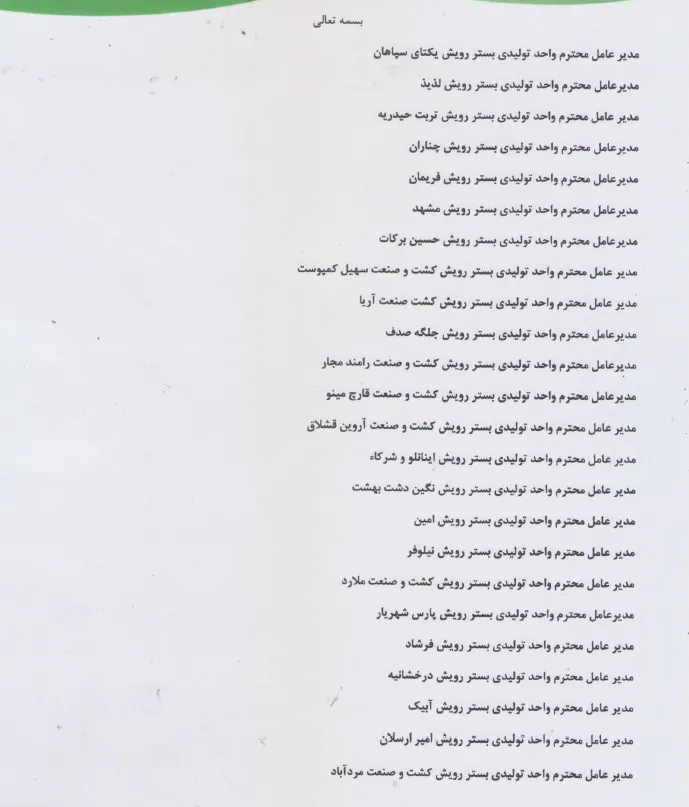 بسمه تعالی
مدیر عامل محترم واحد تولیدی بستر رویش یکتای سپاهان
مدیرعامل محترم واحد تولیدی بستر رویش لذیذ
مدیر عامل محترم واحد تولیدی بستر رویش تربت حیدریه
مدیرعامل محترم واحد تولیدی بستر رویش چناران
مدیرعامل محترم واحد تولیدی بستر رویش فریمان
مدیرعامل محترم واحد تولیدی بستر رویش مشهد
مدیرعامل محترم واحد تولیدی بستر رویش حسین برکات
مدیر عامل محترم واحد تولیدی بستر رویش کشت و صنعت سهیل کمپوست
مدیر عامل محترم واحد تولیدی بستر رویش کشت صنعت آریا
مدیرعامل محترم واحد تولیدی بستر رویش جلگه صدف
مدیر عامل محترم واحد تولیدی بستر رویش کشت و صنعت رامند مجار
مدیرعامل محترم واحد تولیدی بستر رویش کشت و صنعت قارچ مینو
مدیر عامل محترم واحد تولیدی بستر رویش کشت و صنعت آروین قشلاق
مدیر عامل محترم واحد تولیدی بستر رویش اینانلو و شرکاء
مدیر عامل محترم واحد تولیدی بستر رویش نگین دشت بهشت
مدیر عامل محترم واحد تولیدی بستر رویش امین
مدیر عامل محترم واحد تولیدی بستر رویش نیلوفر
مدیر عامل محترم واحد تولیدی بستر رویش کشت و صنعت ملارد
مدیرعامل محترم واحد تولیدی بستر رویش پارس شهریار
مدیر عامل محترم واحد تولیدی بستر رویش فرشاد
مدیر عامل محترم واحد تولیدی بستر رویش درخشانیه
مدیر عامل محترم واحد تولیدی بستر رویش آبیک
مدیر عامل محترم واحد تولیدی بستر رویش امیر ارسلان
مدیر عامل محترم واحد تولیدی بستر رویش کشت و صنعت مردآباد